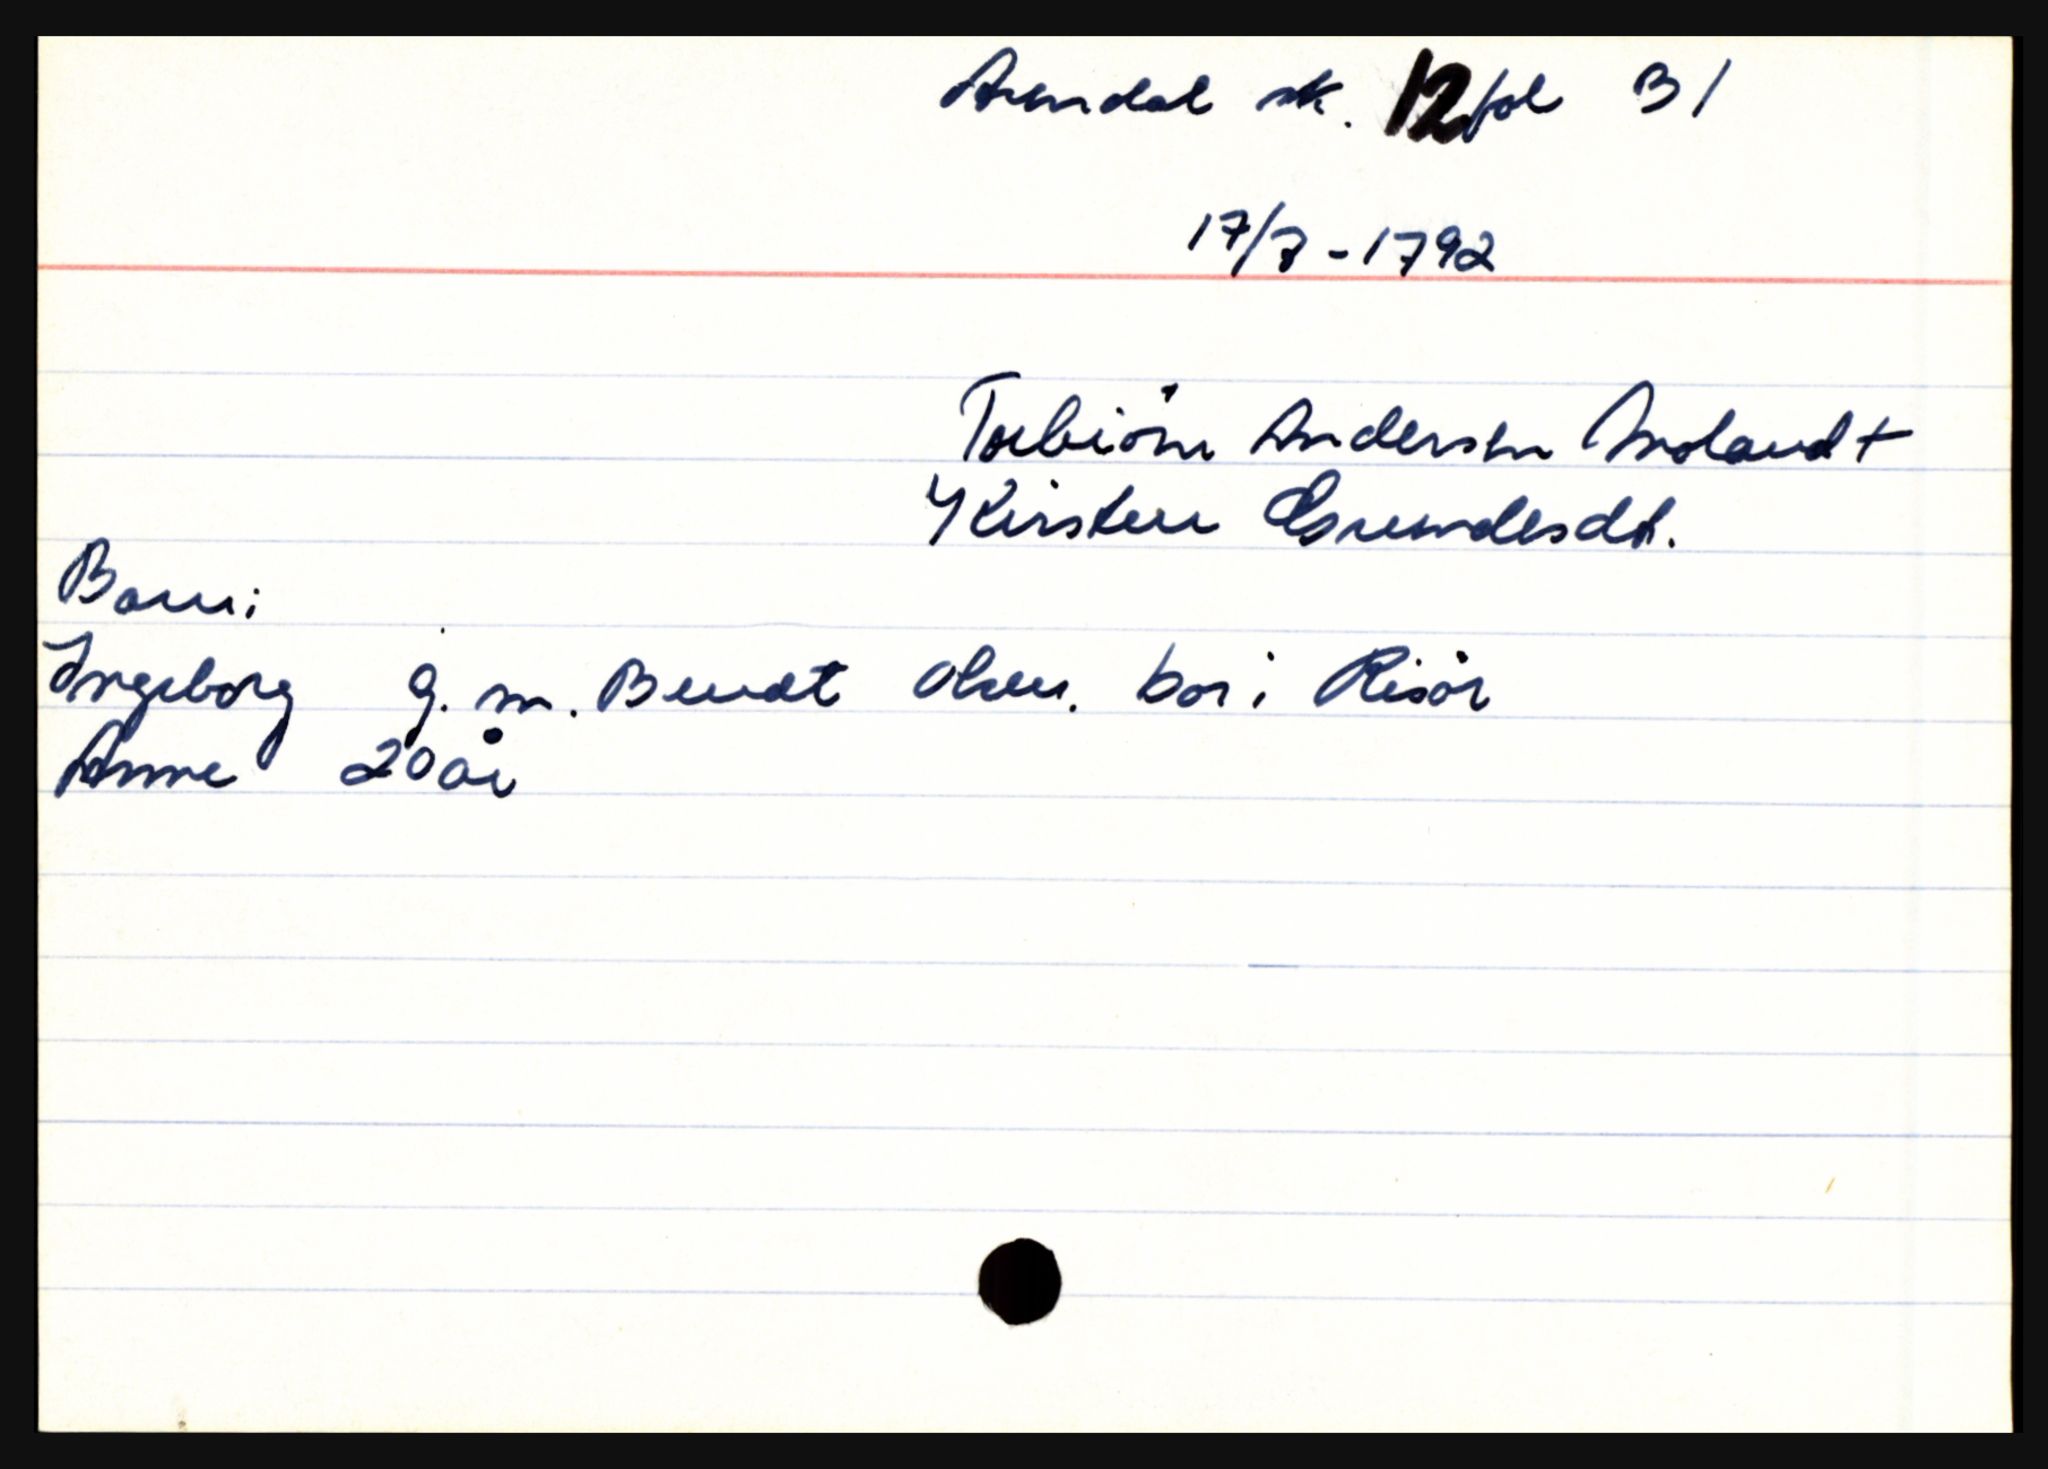 Arendal sk. 12 fol 31
17/7 - 1792
Torbiörn Andersen Molandt
Kirsten Gundesdt.
Barn:
Ingeborg g. m. Bendt Olsen. bor i Risör
Anne 20 år